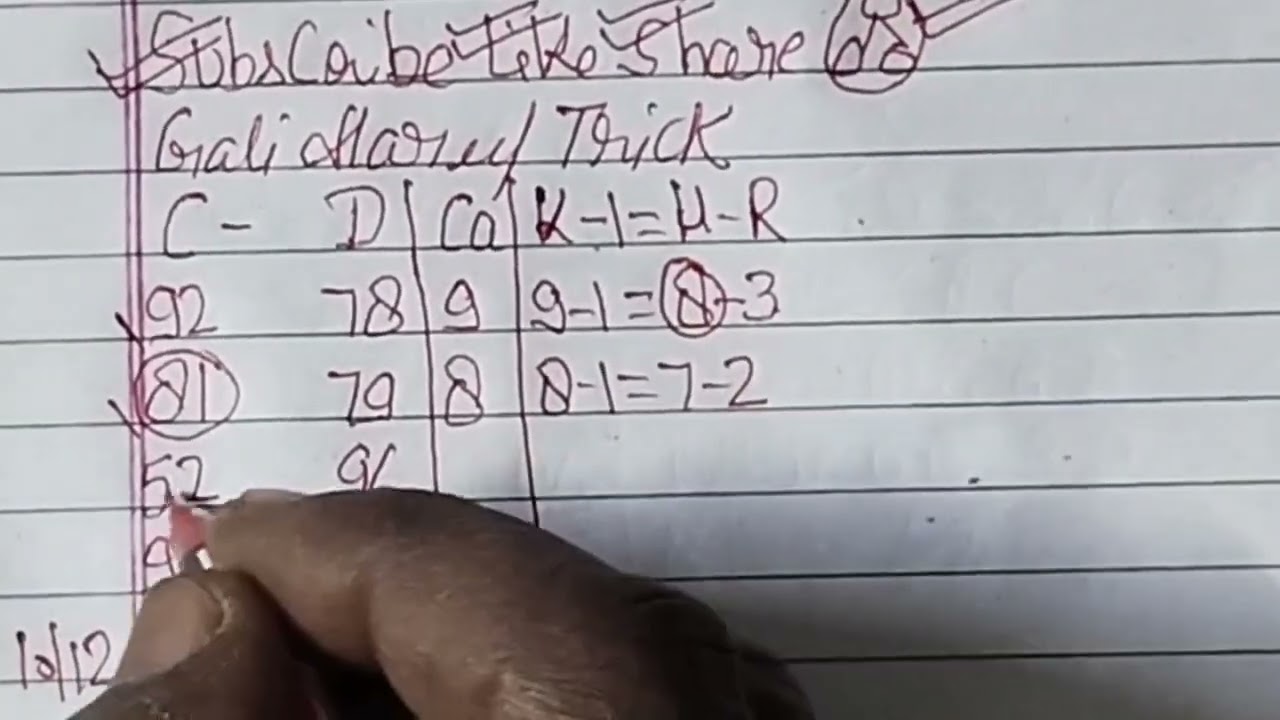 Subscribe Like Share
Gali Haruf Trick
C - D Ca K-1=H-R
92 78 9 9-1=8-3
81 79 8 8-1=7-2
52
10/12